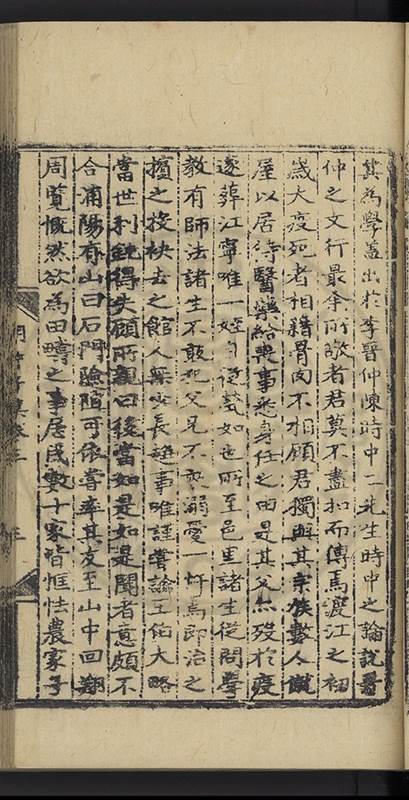 其為學蓋出於李晉仲陳時中二先生時中之論說晉
仲之文行最余所敬者君莫不盡扣而傳焉渡江之初
歲大疫死者相藉骨肉不相顧君獨與其宗族數人僦
屋以居待醫藥給喪事悉身任之由是其父無歿於疫
遂葬江寧唯一姪自從甚如也所至邑里諸生從問學
教有師法諸生不敢犯父兄不敢溺愛一忤焉即治之
擯之投袂去之館人無少長趨事唯謹嘗論王伯大略
當世利鈍得失顧所親曰後當如是如是聞者意頗不
合浦陽有山曰石門險陿可依嘗率其友至山中回翔
周覽慨然欲為田疇之事居民數十家皆恇怯農家子